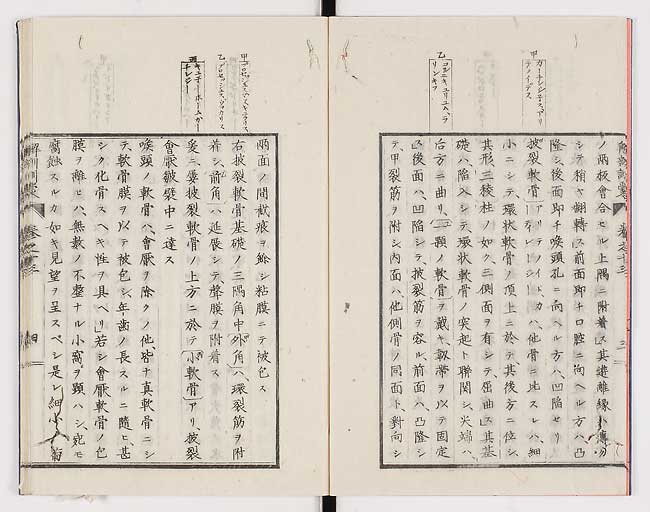 甲
カーチレジネス、アリ
テノイデス
乙
コルニキュリユム、ラ
リンギス
ノ兩板會合セル上隅ニ附着ス其遊離縁ハ薄
シテ稍々翻轉ス前面即チ口腔ニ向ヘル方ハ凸
隆シ後面即チ喉頭孔ニ向ヘル方ハ凹陷セリ
披裂軟骨アリテノイド、カーチレージハ、他骨ニ比スレハ、細
小ニシテ、環狀軟骨ノ頂上ニ於テ其後方ニ位シ、
其形三稜柱ノ如ク三側面ヲ有シテ、屈曲ス其基
礎ハ、陷入シテ、環狀軟骨ノ突起ト聯関シ、尖端ハ、
後方ニ曲リ、一顆ノ軟骨ヲ戴キ靱帶ヲ以テ固定
ス後面ハ、凹陷シテ、披裂筋ヲ容ル、前面ハ、凸隆シ
テ、甲裂筋ヲ附シ内面ハ、他側骨ノ同面ト、對向シ
解剖訓蒙
卷之十三
甲
乙
兩面ノ間截痕ヲ餘シ粘膜ニテ被包ス
右披裂軟骨基礎ノ三隅角中外角ハ、環裂筋ヲ附
着シ、前角ハ延長シテ聲膜ヲ附着ス
爰ニ披裂軟骨ノ上方ニ於テ小軟骨アリ、披裂
會厭皺襞中ニ達ス
喉頭ノ軟骨ハ、會厭ヲ除クノ他、皆チ真軟骨ニシ
テ、軟骨膜ヲ以テ被包シ、年齒ノ長スルニ隨ヒ、甚
シク化骨スヘキ性ヲ具ヘリ若シ會厭軟骨ノ包
膜ヲ離セハ、無數ノ不整ナル小窩ヲ顕ハシ、宛モ
腐蝕スルカ如キ見望ヲ呈スベシ是レ細小
卷之十三
四